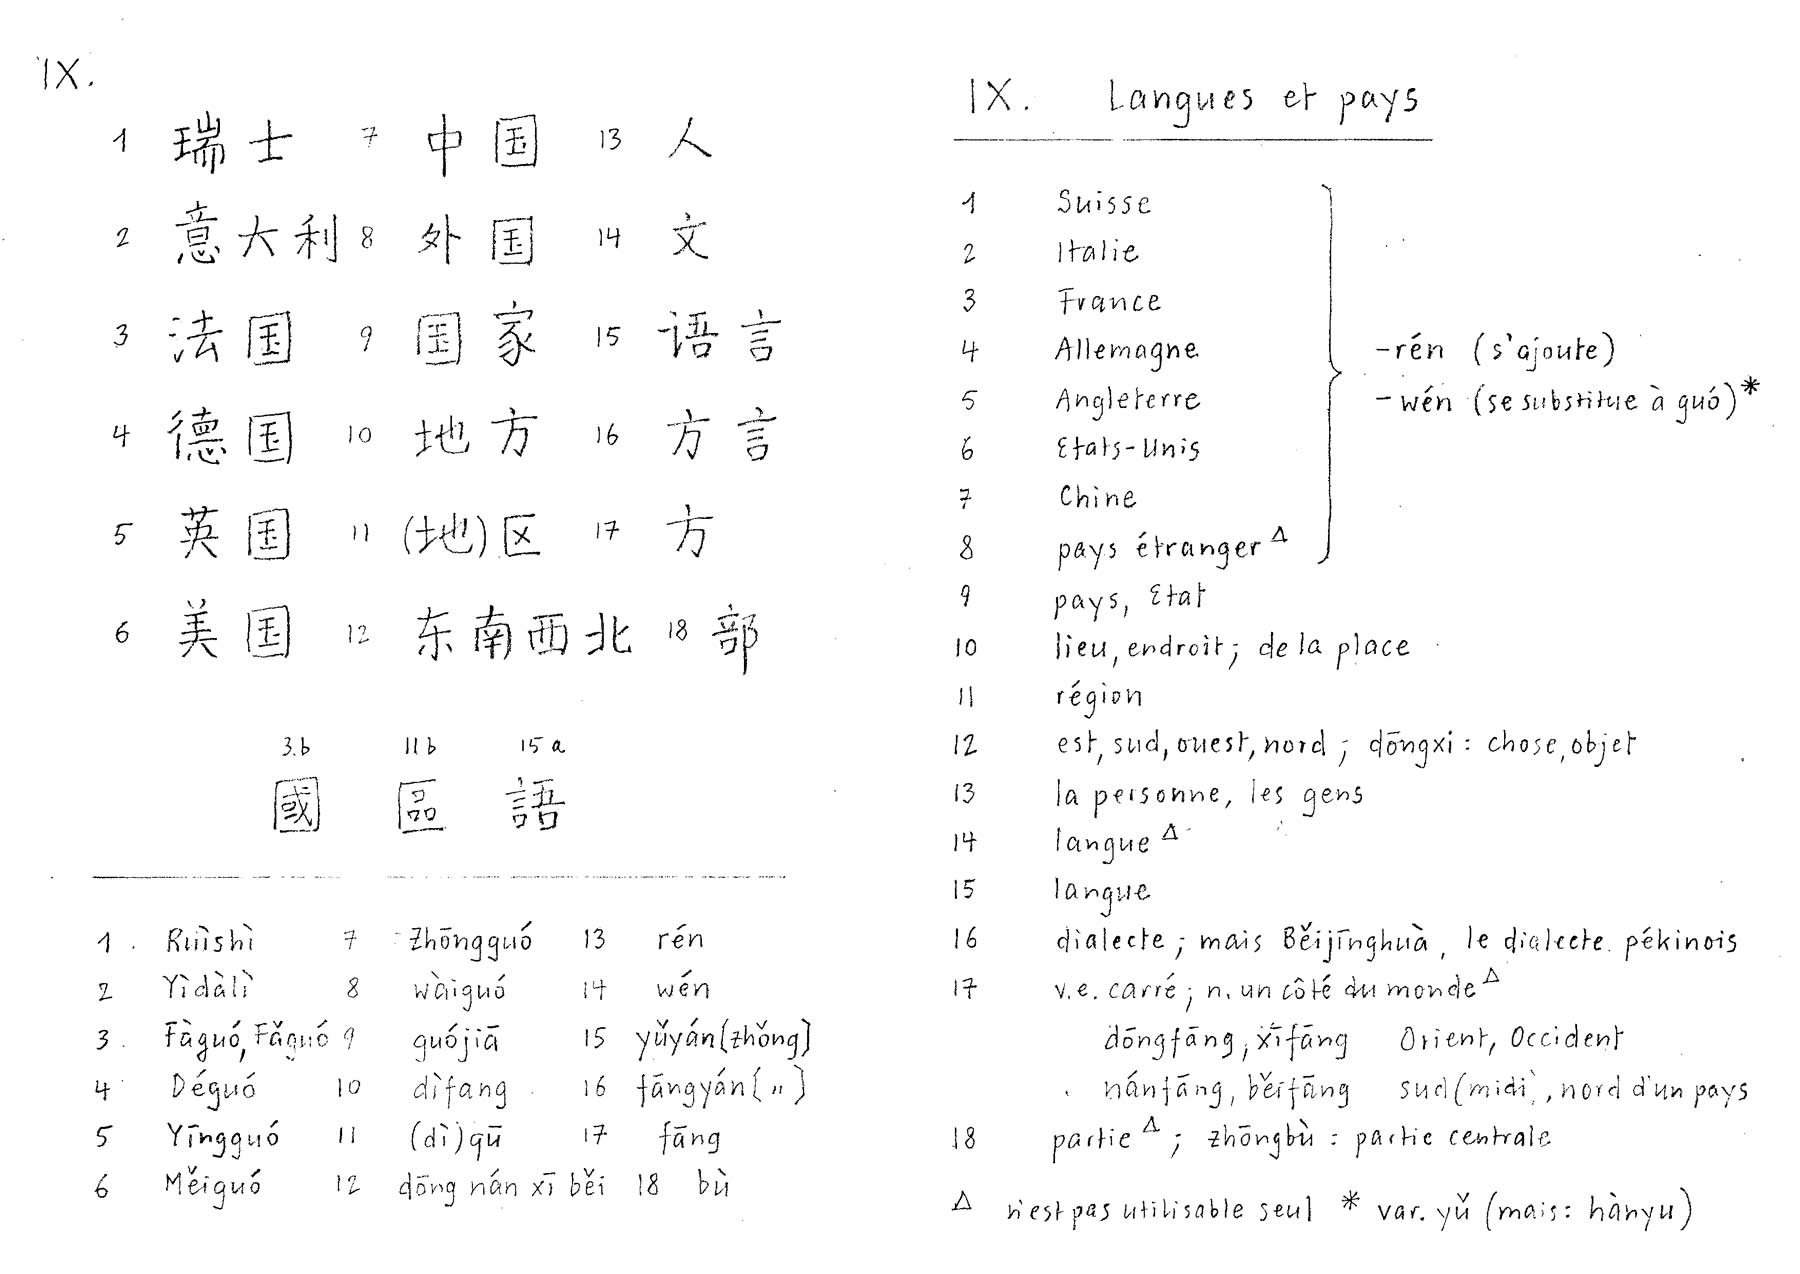 IX.
1 瑞士 7 中国 13 人
2 意大利 8 外国 14 文
3 法国 9 国家 15 语言
4 德国 10 地方 16 方言
5 英国 11 (地)区 17 方
6 美国 12 东南西北 18 部
3.b 11b 15a
國 區 語
1. Ruìshì 7 Zhōngguó 13 rén
2 Yìdàlì 8 wàiguó 14 wén
3. Fàguó, Fǎguó 9 guójiā 15 yǔyán [zhǒng]
4 Déguó 10 dìfang 16 fāngyán [ " ]
5 Yīngguó 11 (dì)qū 17 fāng
6 Měiguó 12 dōng nán xī běi 18 bù
IX. Langues et pays
1 Suisse
2 Italie
3 France
4 Allemagne -rén (s'ajoute)
5 Angleterre -wén (se substitue à guó)*
6 Etats-Unis
7 Chine
8 pays étranger Δ
9 pays, Etat
10 lieu, endroit; de la place
11 région
12 est, sud, ouest, nord; dōngxi: chose, objet
13 la personne, les gens
14 langue Δ
15 langue
16 dialecte; mais Běijīnghuà, le dialecte pékinois
17 v.e. carré; n. un côté du monde Δ
dōngfāng, xīfāng Orient, Occident
nánfāng, běifāng sud (midi), nord d'un pays
18 partie Δ; zhōngbù: partie centrale
Δ n'est pas utilisable seul * var. yǔ (mais: hànyu)